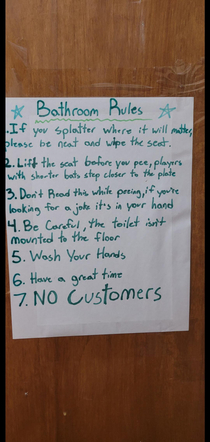 Bathroom Rules
1. If you splatter where it will matter,
please be neat and wipe the seat.
2. Lift the seat before you pee, players
with shorter bats step closer to the plate
3. Don't Read this while peeing, if you're
looking for a joke it's in your hand
4. Be Careful, the toilet isn't
mounted to the floor
5. Wash Your Hands
6. Have a great time
7. NO Customers